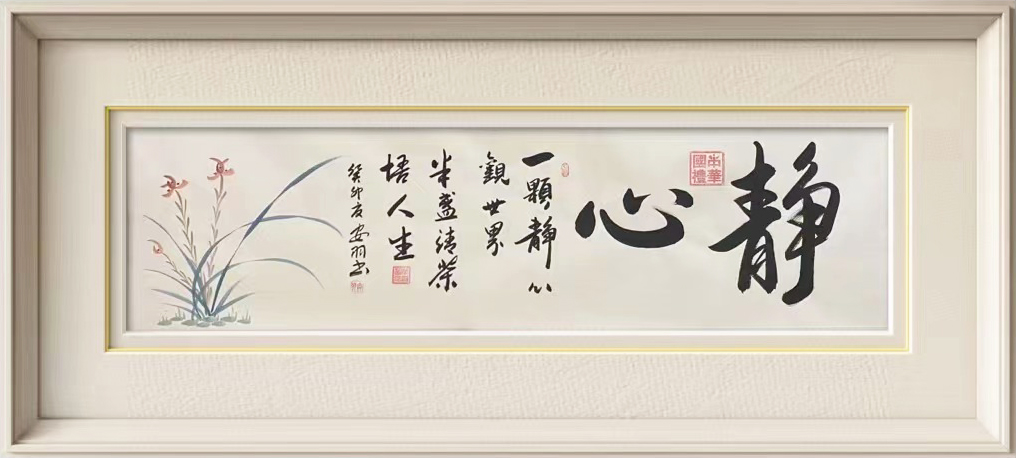 静心
中華國禮
一顆静心
觀世界
半盞清茶
悟人生
癸卯友安羽书